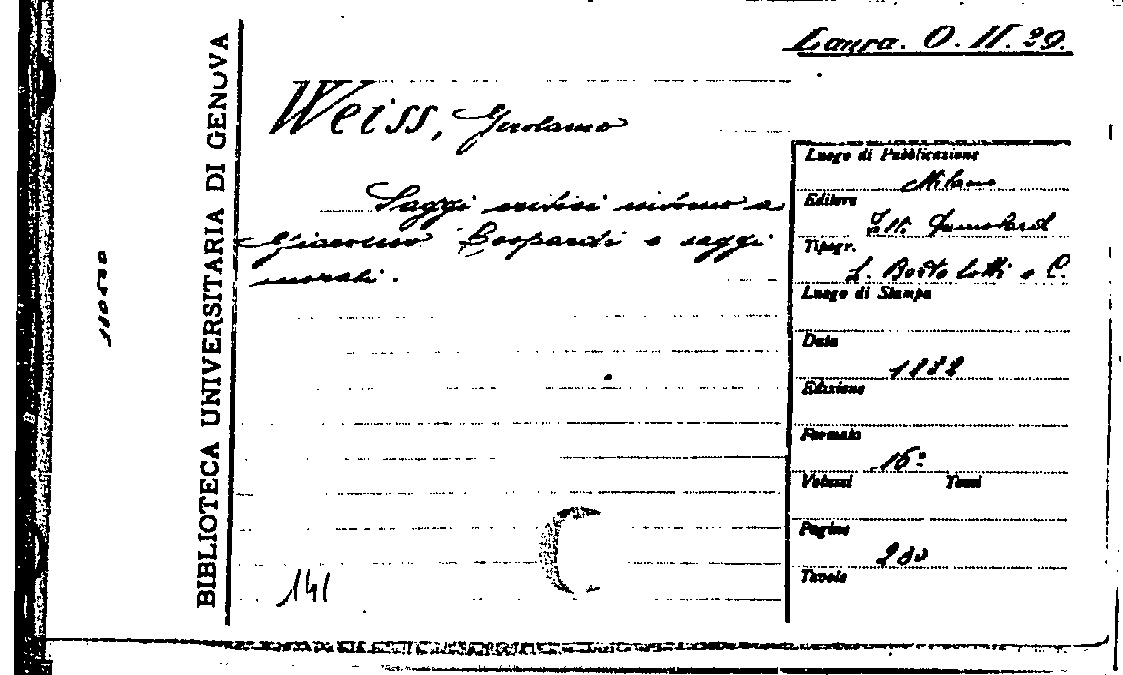 Laura. O. II. 29.
Weiss, Girolamo
Saggi critici intorno a
Giacomo Leopardi e saggi
morali.
141
BIBLIOTECA UNIVERSITARIA DI GENOVA
Luogo di Pubblicazione
Milano
Editore
Dumolard
Tipogr.
L. Bortolotti e C.
Luogo di Stampa
Data
1882
Edizione
Formato
16º
Volumi Tomi
Pagine
280
Tavole